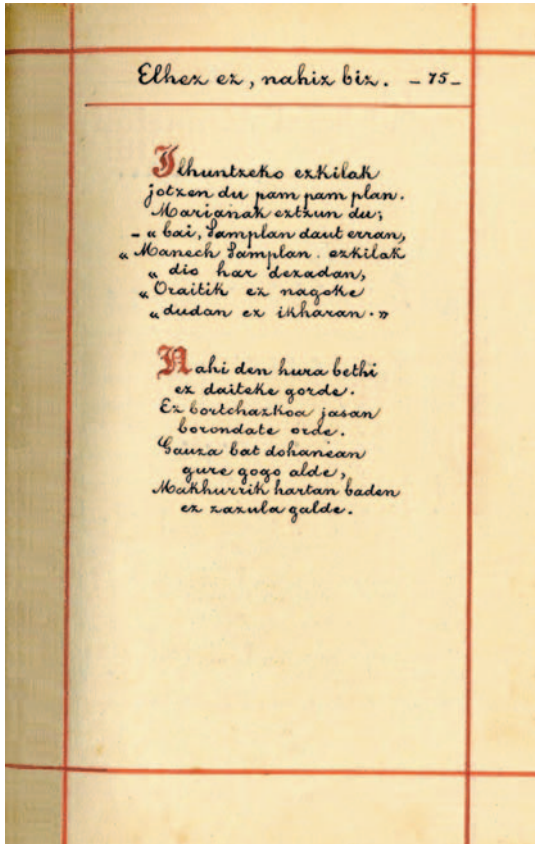 Elhez ez, nahiz biz. - 75 -
Ilhuntzeko ezkilak
jotzen du pam pam plan.
Marianak eztzun du;
- « bai, Samplan daut erran,
« Manech Samplan. ezkilak
« dio har dezadan,
« Oraitik ez nagoke
« dudan ez ikharan. »
Nahi den hura bethi
ez daiteke gorde.
Ez bortchazkoa jasan
borondate orde.
Gauza bat dohanean
gure gogo alde,
Makhurrik hartan baden
ez zazula galde.